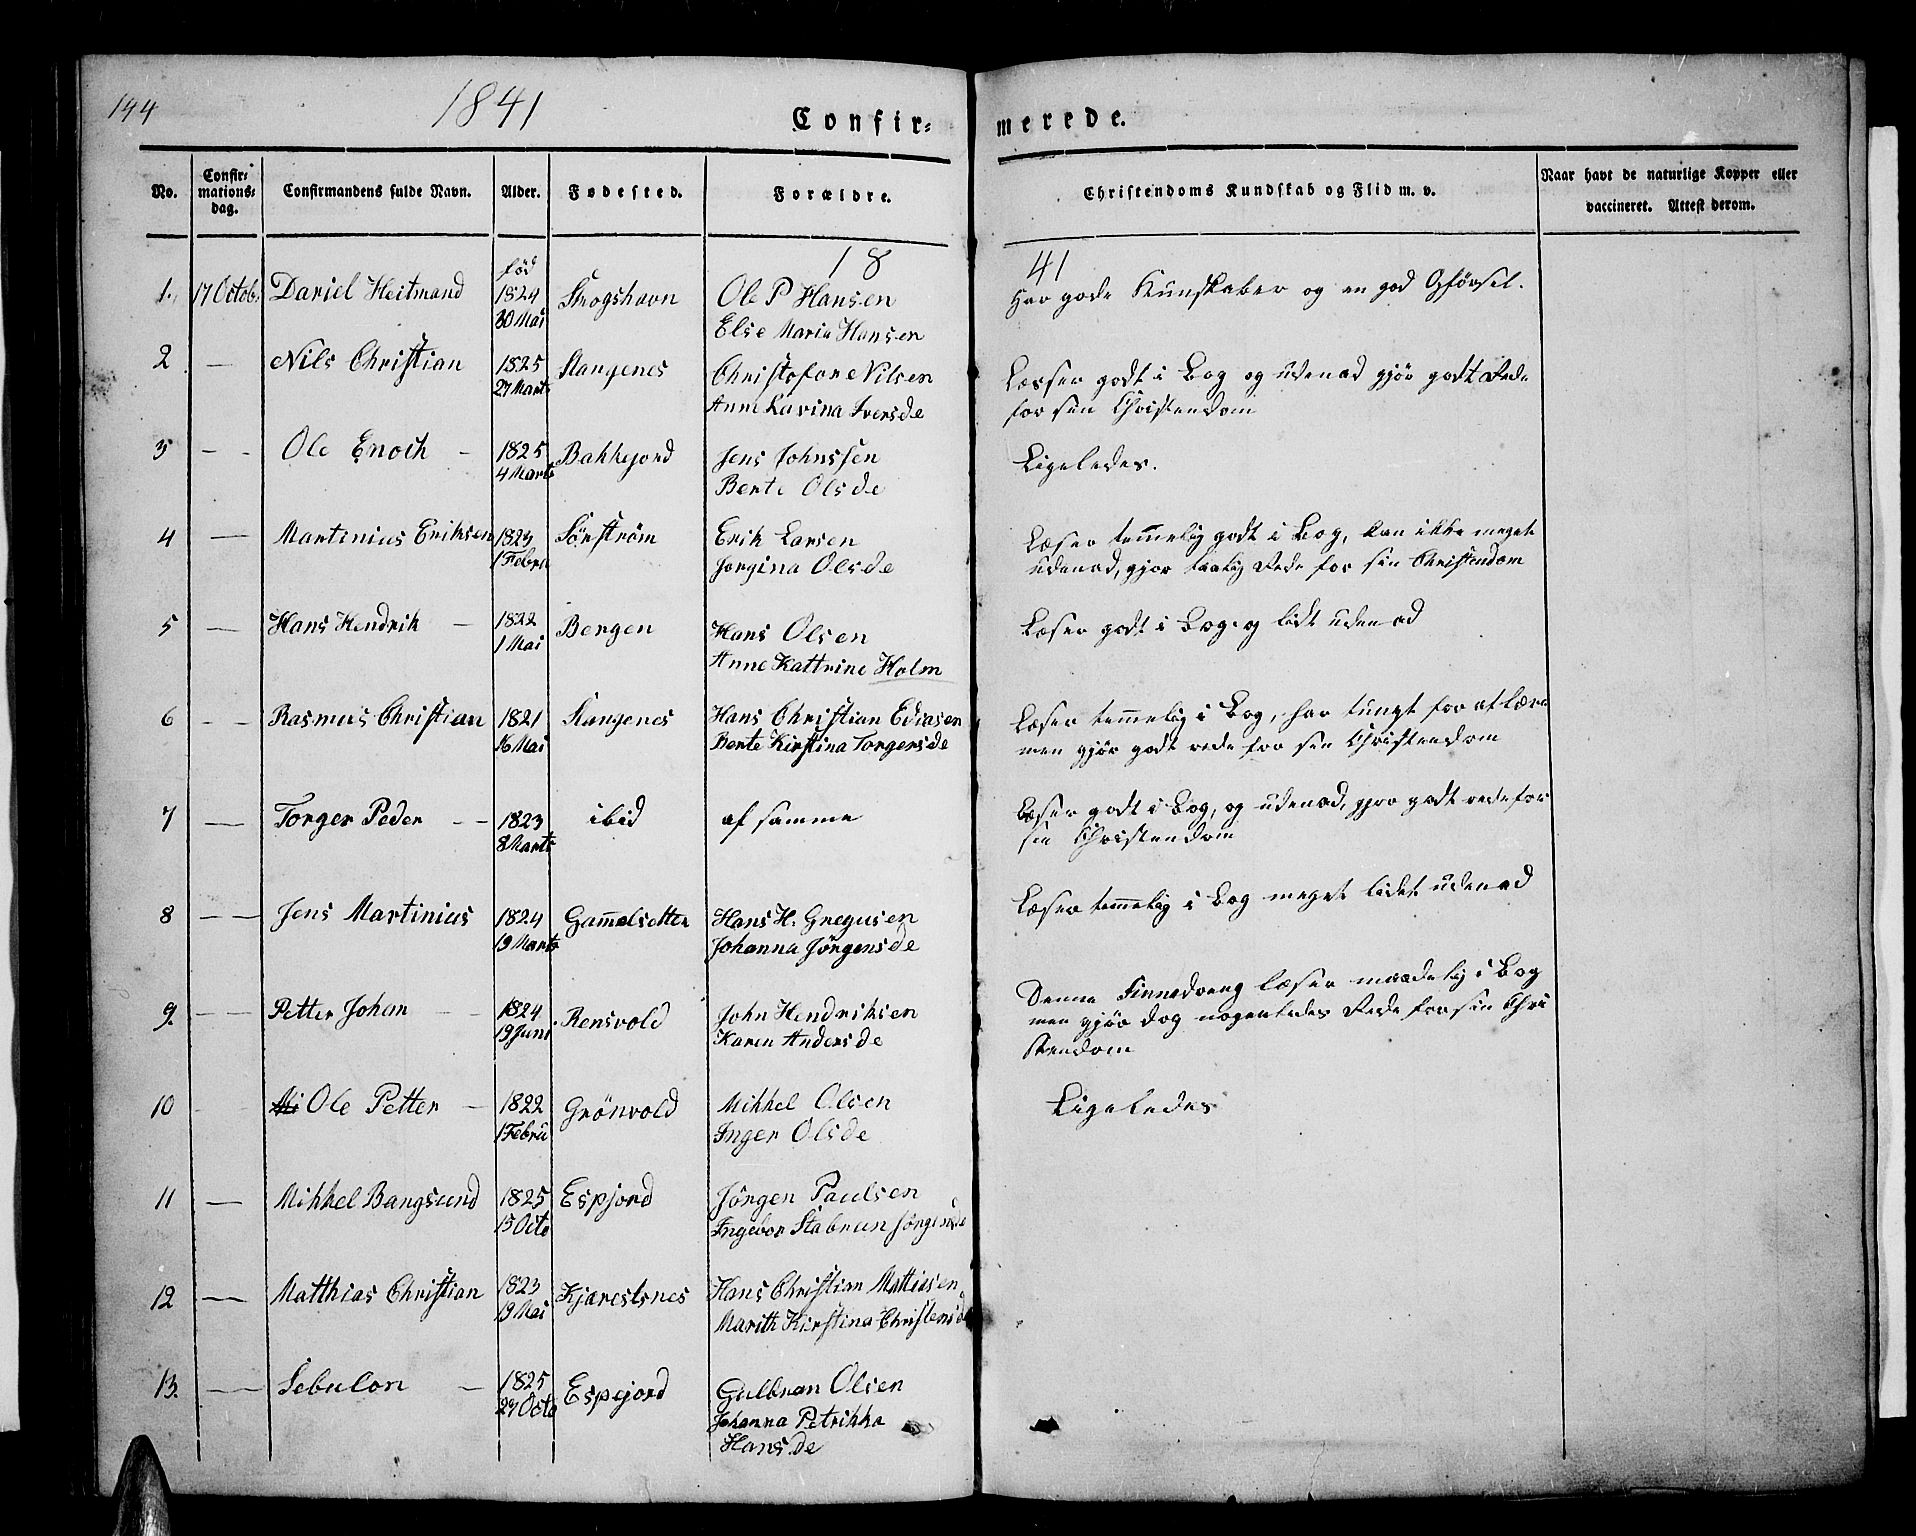 144
1841
Confir=
merede.
No.
Confir=
mations=
dag.
Confirmandens fulde Navn.
Alder.
Fødested.
Forældre.
Christendoms Kundskab og Flid m. v.
Naar havt de naturlige Kopper eller
vaccineret. Attest derom.
18
41
1. 17 Octob. Daniel Heitmand
fød
1824
30 Mai
Krogshavn
Ole P Hansen
Else Maria Hansen
Har gode Kunskaber og en god Opførsel.
2 — Nils Christian
1825
27 Marts
Stangenes
Christofore Nilsen
Anne Karina Iversde
Læser godt i Bog og udenad gjør godt Rede
for sin Christendom
3 — Ole Enoch —
1825
4 Marts
Bakkejord
Jens Johnssen
Berte Olsde
Ligeledes.
4 — Martinius Eriksen
1823
1 Febru
Sørstrøm
Erik Larsen
Jorgina Olsde
Læser temmelig godt i Bog, kan ikke meget
udenad, gjør taalig Rede for sin Christendom
5 — Hans Hendrik —
1822
1 Mai
Bergen
Hans Olsen
Anne Kattrine Holm
Læser godt i Bog og lidt udenad
6 — Rasmus Christian
1821
16 Mai
Stangenes
Hans Christian Ediasen
Berte Kirstina Torgersde
Læser temmelig i Bog, har tungt for at lære
men gjør godt rede for sin Christendom
7 — Torger Peder —
1823
8 Marts
ibid
af samme
Læser godt i Bog, og udenad, gjør godt rede for
sin Christendom
8 — Jens Martinius
1824
19 Marts
Gammelsetter
Hans H. Gregusen
Johanna Jørgensde
Læser temmelig i Bog meget lidet udenad
9. — Petter Johan —
1824
19 Juni
Rensvold
John Hendriksen
Karen Andersde
Denne Finnedreng læser maadelig i Bog
men gjør dog nogenledes Rede for sin Chri
stendom
10 Ole Petter —
1822
1 Febru
Grönvold
Mikkel Olsen
Inger Olsde
Ligeledes
11 — Mikkel Bangsund
1825
15 Octo
Espjord
Jörgen Paulsen
Ingebor Stabrun Jörgensde
12 — Matthias Christian
1823
19 Mai
Kjærestsnes
Hans Christian Mattiasen
Marith Kirstina Christensd
13. — Sebulon —
1825
29 Octo
Espejord
Gulbran Olsen
Johanna Petrikka
Hansde